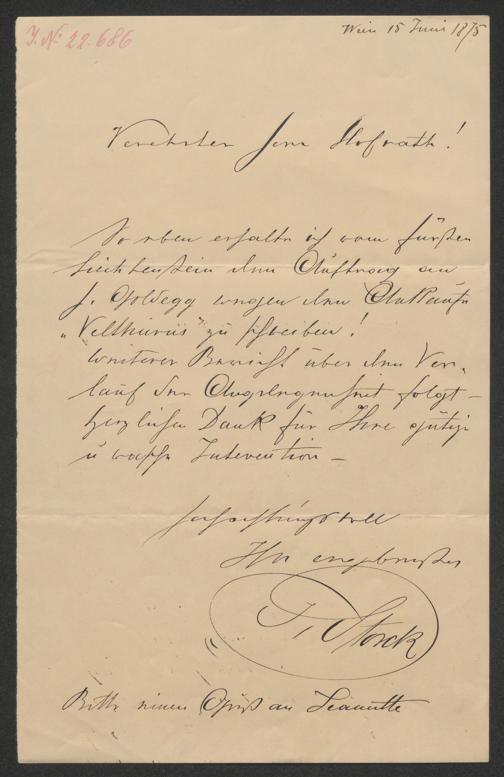 J. No 22.686
Wien 15 Juni 1875
Verehrter Herr Hofrath!
So eben erhalte ich vom Fürsten
Liechtenstein den Auftrag an
J. Goldegg wegen den Ankaufe
„Velthurns" zu schreiben!
Weiterer Bericht über den Ver-
lauf der Angelegenheit folgt –
herzlichen Dank für Ihre gütige
u rasche Intervention –
Hochachtungsvoll
Ihr ergebenster
J. Storck
Bitte einen Gruß an Jeanette